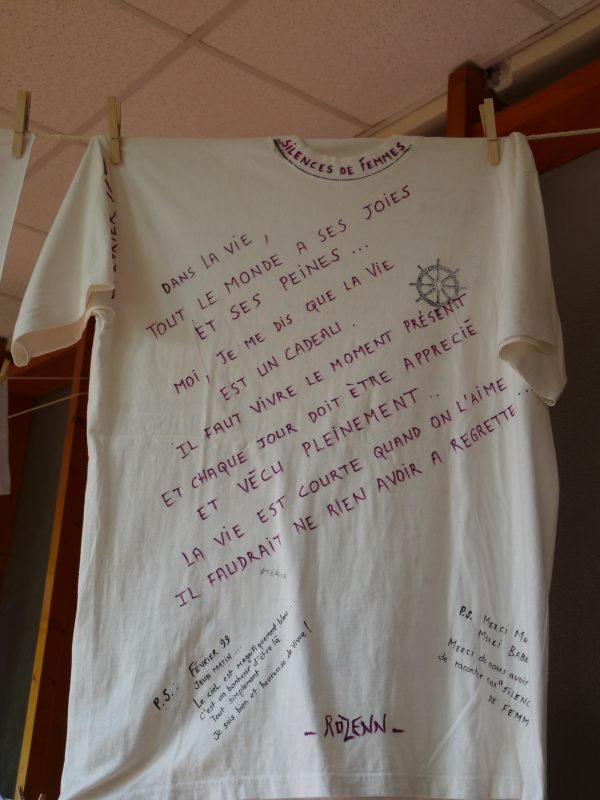 SILENCES DE FEMMES
DANS LA VIE,
TOUT LE MONDE A SES JOIES
ET SES PEINES...
MOI, JE ME DIS QUE LA VIE
EST UN CADEAU.
IL FAUT VIVRE LE MOMENT PRÉSENT
ET CHAQUE JOUR DOIT ÊTRE APPRECIÉ
ET VÉCU PLEINEMENT..
LA VIE EST COURTE QUAND ON L'AIME
IL FAUDRAIT NE RIEN AVOIR A REGRETTE...
P.S.: FÉVRIER 99
JEUDI MATIN...
Le ciel est magnifiquement bleu...
c'est un bonheur d'être là
Tout simplement...
Je suis bien et heureuse de vivre!
P.S. MERCI
MERCI
MERCI de nous avoir
de raconter ces "SILENC
DE FEMM
- ROZENN -